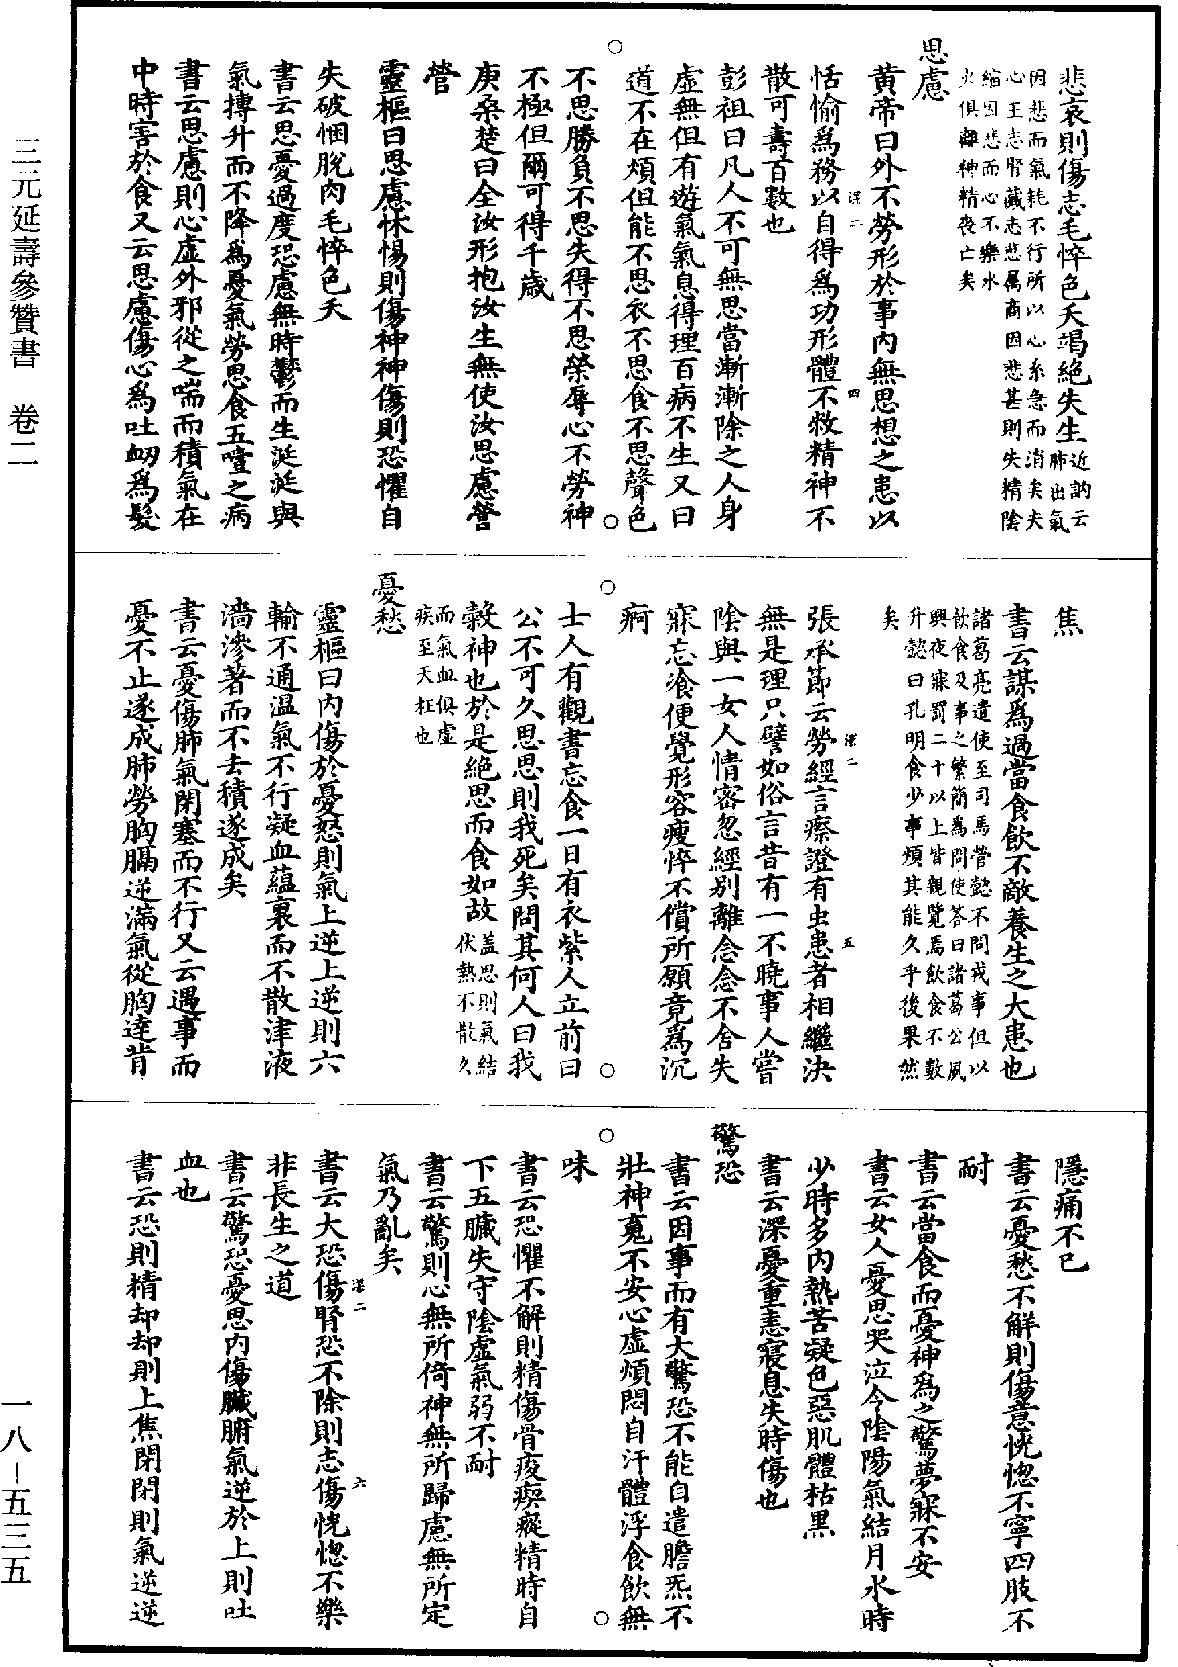 悲哀則傷志毛悴色夭竭絕失生近訥云
因悲而氣耗不行所以心系急而消矣夫
心主志腎藏志悲屬商因悲甚則失精陰
縮因悲而心不樂水
火俱離神精喪亡矣
思慮
黃帝曰外不勞形於事內無思想之患以
恬愉為務以自得為功形體不敝精神不
散可壽百數也
彭祖曰凡人不可無思當漸漸除之人身
虛無但有遊氣氣息得理百病不生又曰
道不在煩但能不思衣不思食不思聲色
不思勝負不思失得不思榮辱心不勞神
不極但爾可得千歲
庚桑楚曰全汝形抱汝生無使汝思慮營
營
靈樞曰思慮怵惕則傷神神傷則恐懼自
失破䐃脫肉毛悴色夭
書云思憂過度恐慮無時鬱而生涎涎與
氣搏升而不降為憂氣勞思食五噎之病
書云思慮則心虛外邪從之喘而積氣在
中時害於食又云思慮傷心為吐衂為髮
焦
書云謀為過當食飲不敵養生之大患也
諸葛亮遣使至司馬營懿不問戎事但以
飲食及事之繁簡為問使答曰諸葛公夙
興夜寐罰二十以上皆親覽焉飲食不數
升懿曰孔明食少事煩其能久乎後果然
矣
張承節云勞經言瘵證有虫患者相繼決
無是理只譬如俗言昔有一不曉事人嘗
陰與一女人情密忽經別離念念不舍失
寐忘飡便覺形容瘦悴不償所願竟為沉
痾
士人有觀書忘食一日有衣紫人立前曰
公不可久思思則我死矣問其何人曰我
穀神也於是絕思而食如故蓋思則氣結
伏熱不散久
而氣血俱虛
疾至夭枉也
憂愁
靈樞曰內傷於憂怒則氣上逆上逆則六
輸不通溫氣不行凝血蘊裹而不散津液
濇滲著而不去積遂成矣
書云憂傷肺氣閉塞而不行又云遇事而
憂不止遂成肺勞胸膈逆滿氣從胸達背
隱痛不已
書云憂愁不解則傷意恍惚不寧四肢不
耐
書云當食而憂神為之驚夢寐不安
書云女人憂思哭泣令陰陽氣結月水時
少時多內熱苦凝色惡肌體枯黑
書云深憂重恚寢息失時傷也
驚恐
書云因事而有大驚恐不能自遣膽炁不
壯神䰟不安心虛煩悶自汗體浮食飲無
味
書云恐懼不解則精傷骨痠瘈瘲精時自
下五臟失守陰虛氣弱不耐
書云驚則心無所倚神無所歸慮無所定
氣乃亂矣
書云大恐傷腎恐不除則志傷恍惚不樂
非長生之道
書云驚恐憂思內傷臟腑氣逆於上則吐
血也
書云恐則精却却則上焦閉閉則氣逆逆
三元延壽參贊書　卷二
一八—五三五